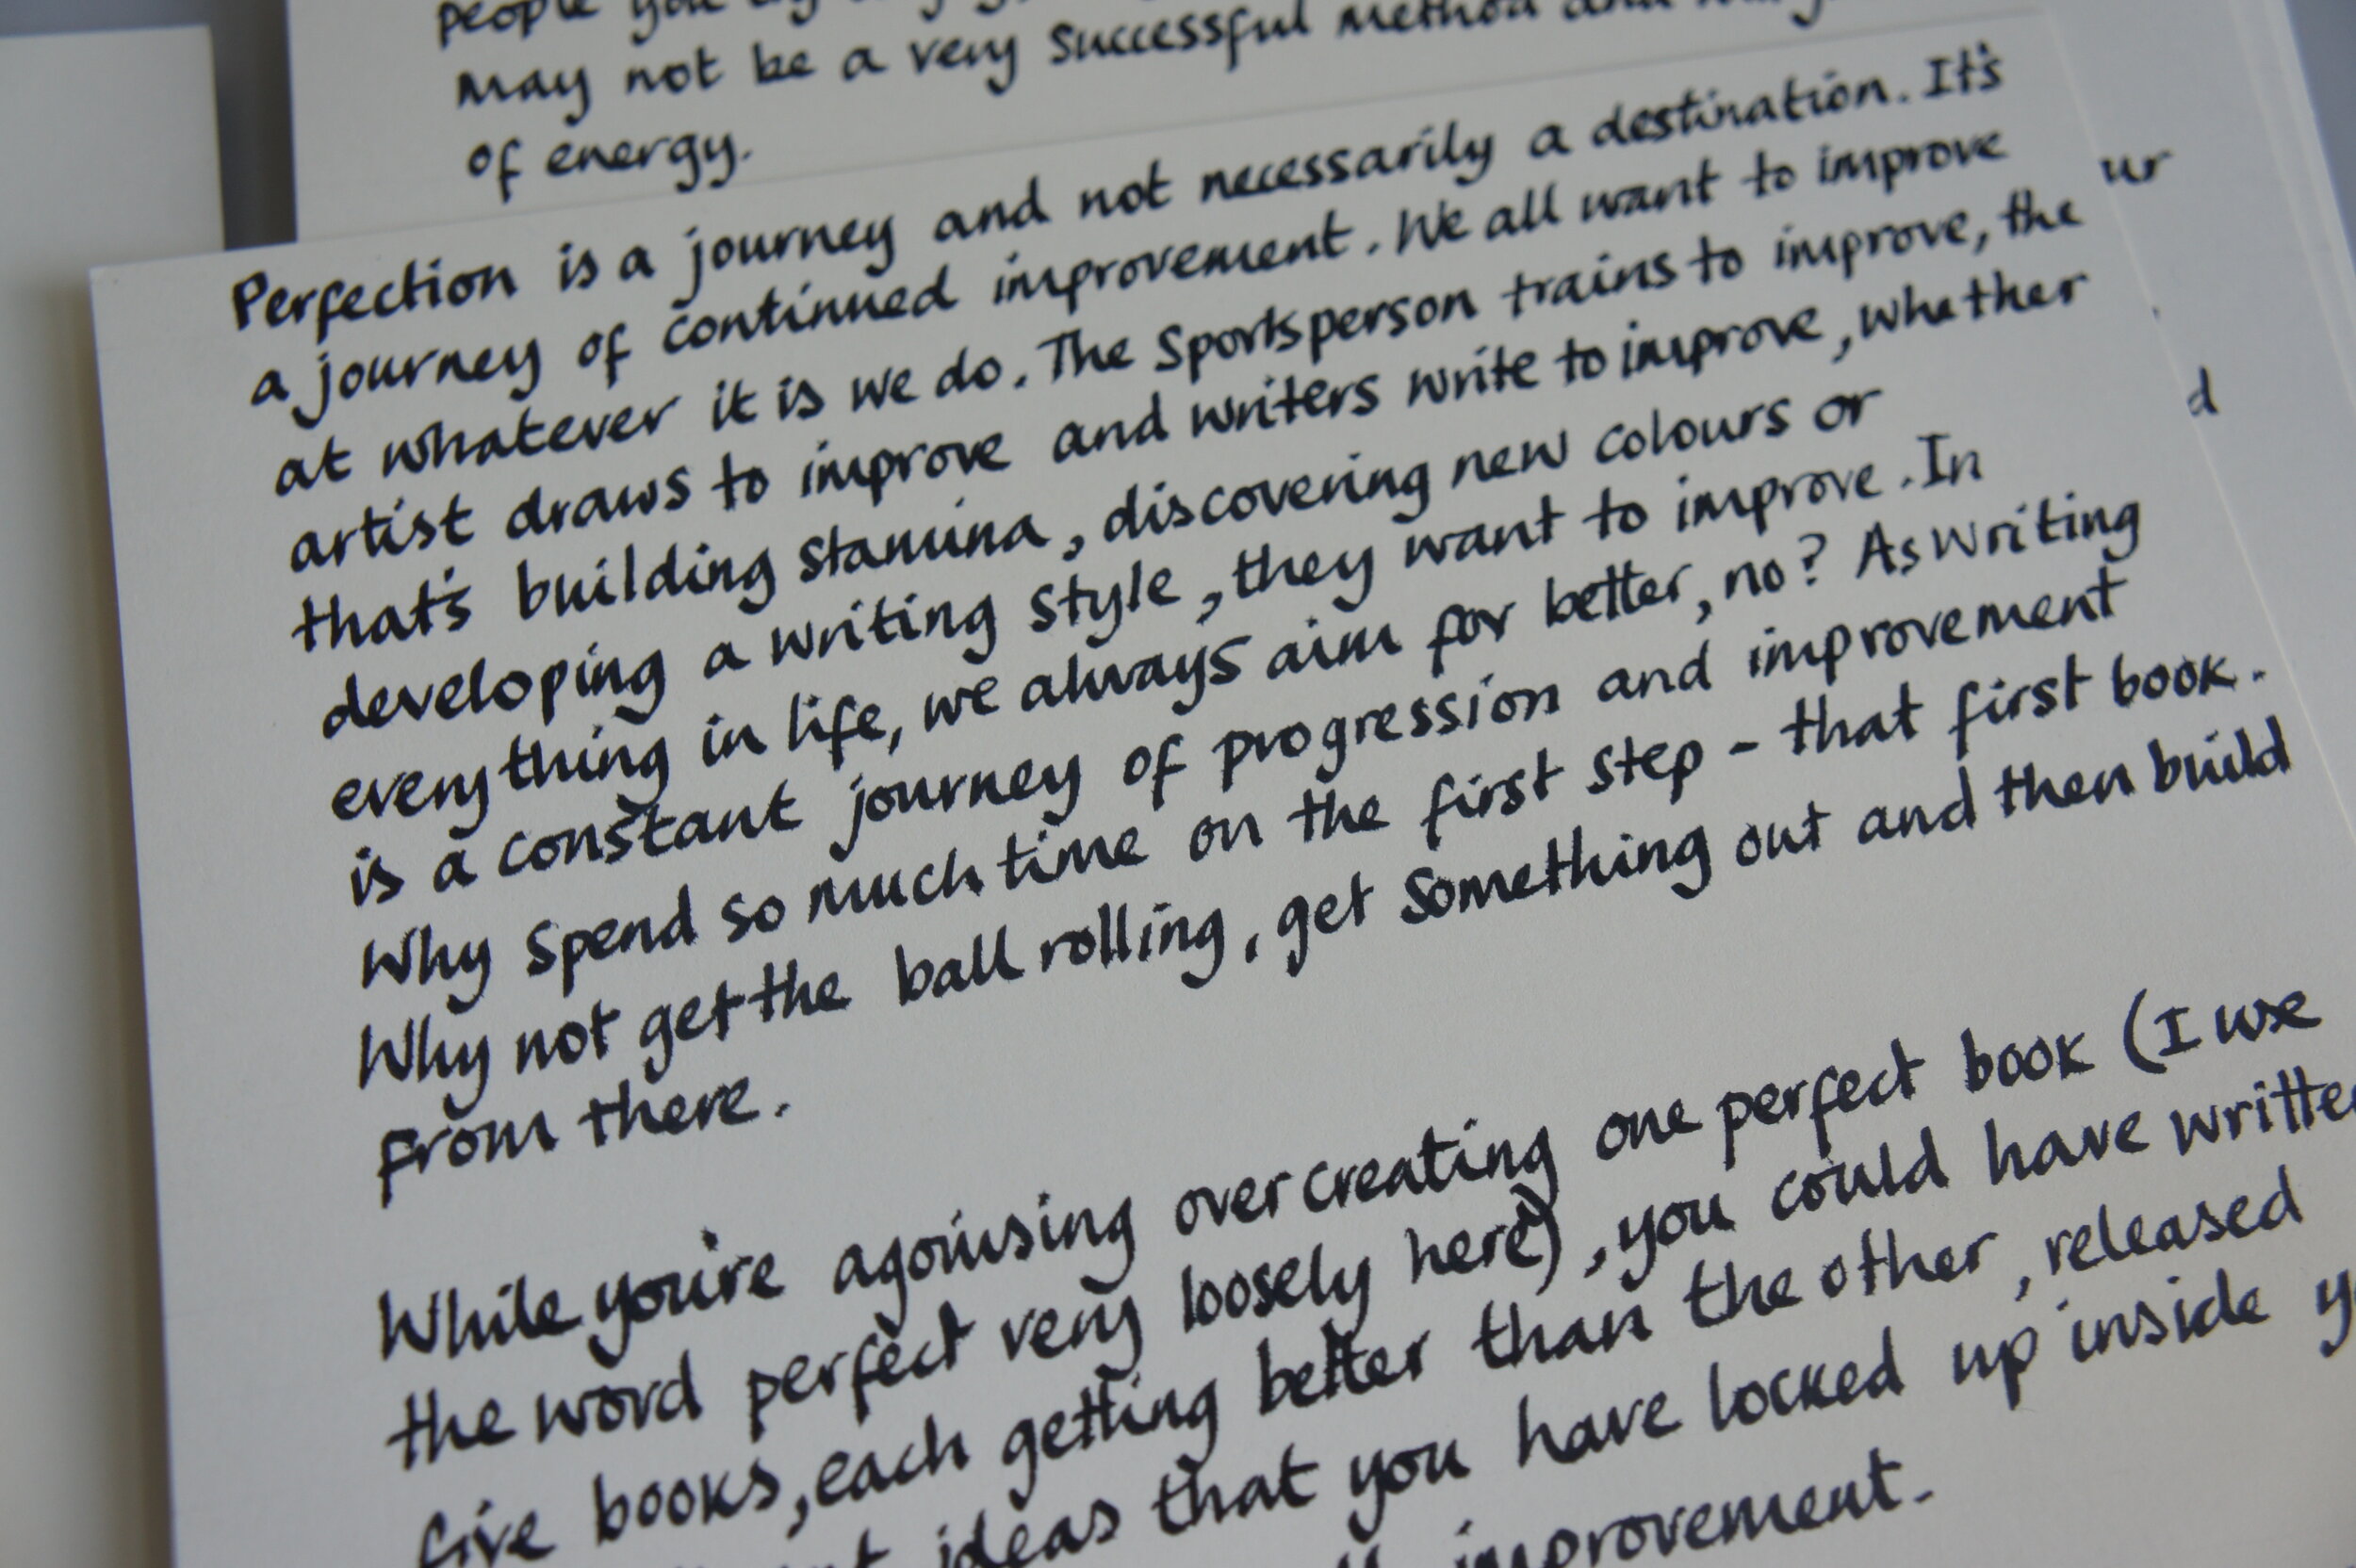 people you
may not be a very successful method and
of energy.
Perfection is a journey and not necessarily a destination. It's
a journey of continued improvement. We all want to improve
at whatever it is we do. The Sportsperson trains to improve, the
artist draws to improve and writers write to improve, whether
that's building stamina, discovering new colours or
developing a writing style, they want to improve. In
everything in life, we always aim for better, no? As writing
is a constant journey of progression and improvement
Why spend so much time on the first step - that first book.
Why not get the ball rolling, get something out and then build
from there.
While you're agonising over creating one perfect book (I use
the word perfect very loosely here), you could have written
five books, each getting better than the other, released
ideas that you have locked up inside
improvement.
ur
d